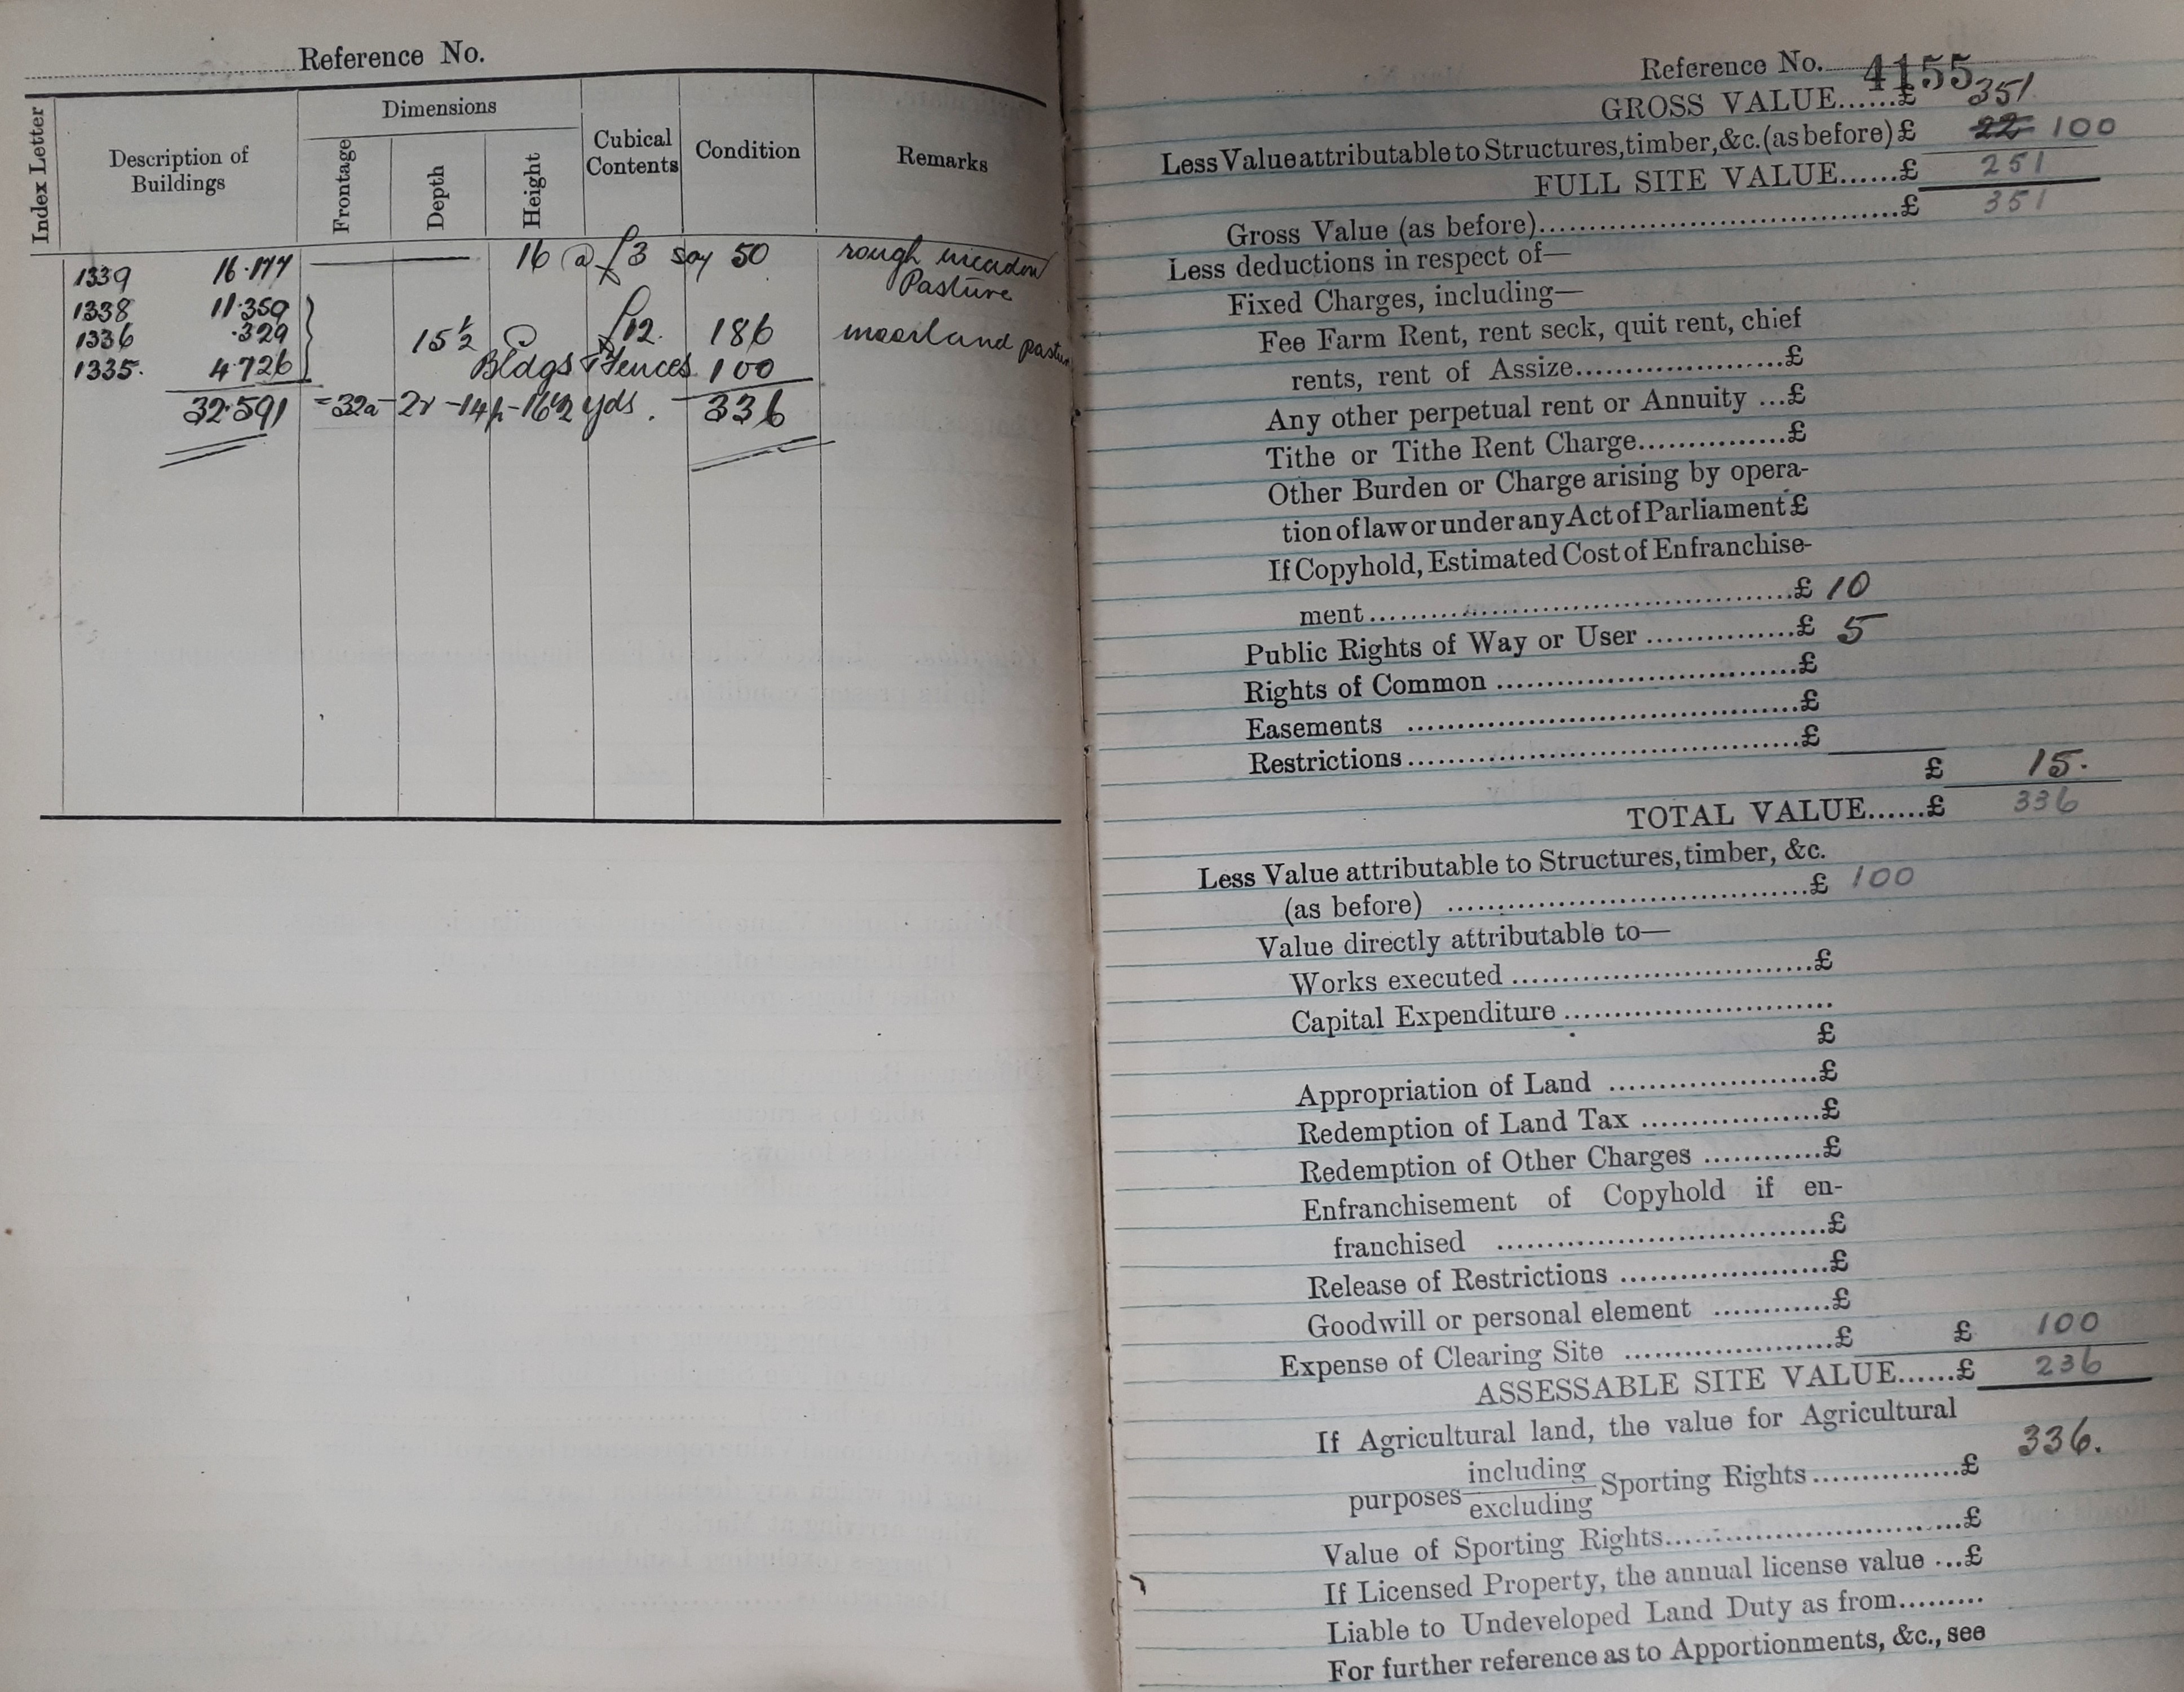 Reference No.
Index Letter
Description of Buildings
Dimensions
Frontage
Depth
Height
Cubical Contents
Condition
Remarks
1339 16.177 16 @ £3 say 50 rough meadow
Pasture
1338 11.359
1336 .329 15½ @ £12. 186 moorland pasture
1335. 4.726 Bldgs & Fences 100
32.591 = 32a - 2r - 14p - 16½ yds. 336
Reference No. 4155
GROSS VALUE......£ 351
Less Value attributable to Structures, timber, &c. (as before) £ 22 100
FULL SITE VALUE......£ 251
Gross Value (as before)...£ 351
Less deductions in respect of—
Fixed Charges, including—
Fee Farm Rent, rent seck, quit rent, chief
rents, rent of Assize...£
Any other perpetual rent or Annuity ...£
Tithe or Tithe Rent Charge...£
Other Burden or Charge arising by opera-
tion of law or under any Act of Parliament £
If Copyhold, Estimated Cost of Enfranchise-
ment...£ 10
Public Rights of Way or User ...£ 5
Rights of Common ...£
Easements ...£
Restrictions...£
£ 15.
TOTAL VALUE......£ 336
Less Value attributable to Structures, timber, &c.
(as before) ...£ 100
Value directly attributable to—
Works executed ...£
Capital Expenditure ...
£
Appropriation of Land ...£
Redemption of Land Tax ...£
Redemption of Other Charges ...£
Enfranchisement of Copyhold if en-
franchised ...£
Release of Restrictions ...£
Goodwill or personal element ...£
Expense of Clearing Site ...£ £ 100
ASSESSABLE SITE VALUE......£ 236
If Agricultural land, the value for Agricultural
336.
including
purposes Sporting Rights...£
excluding
Value of Sporting Rights...£
If Licensed Property, the annual license value ...£
Liable to Undeveloped Land Duty as from.........
For further reference as to Apportionments, &c., see